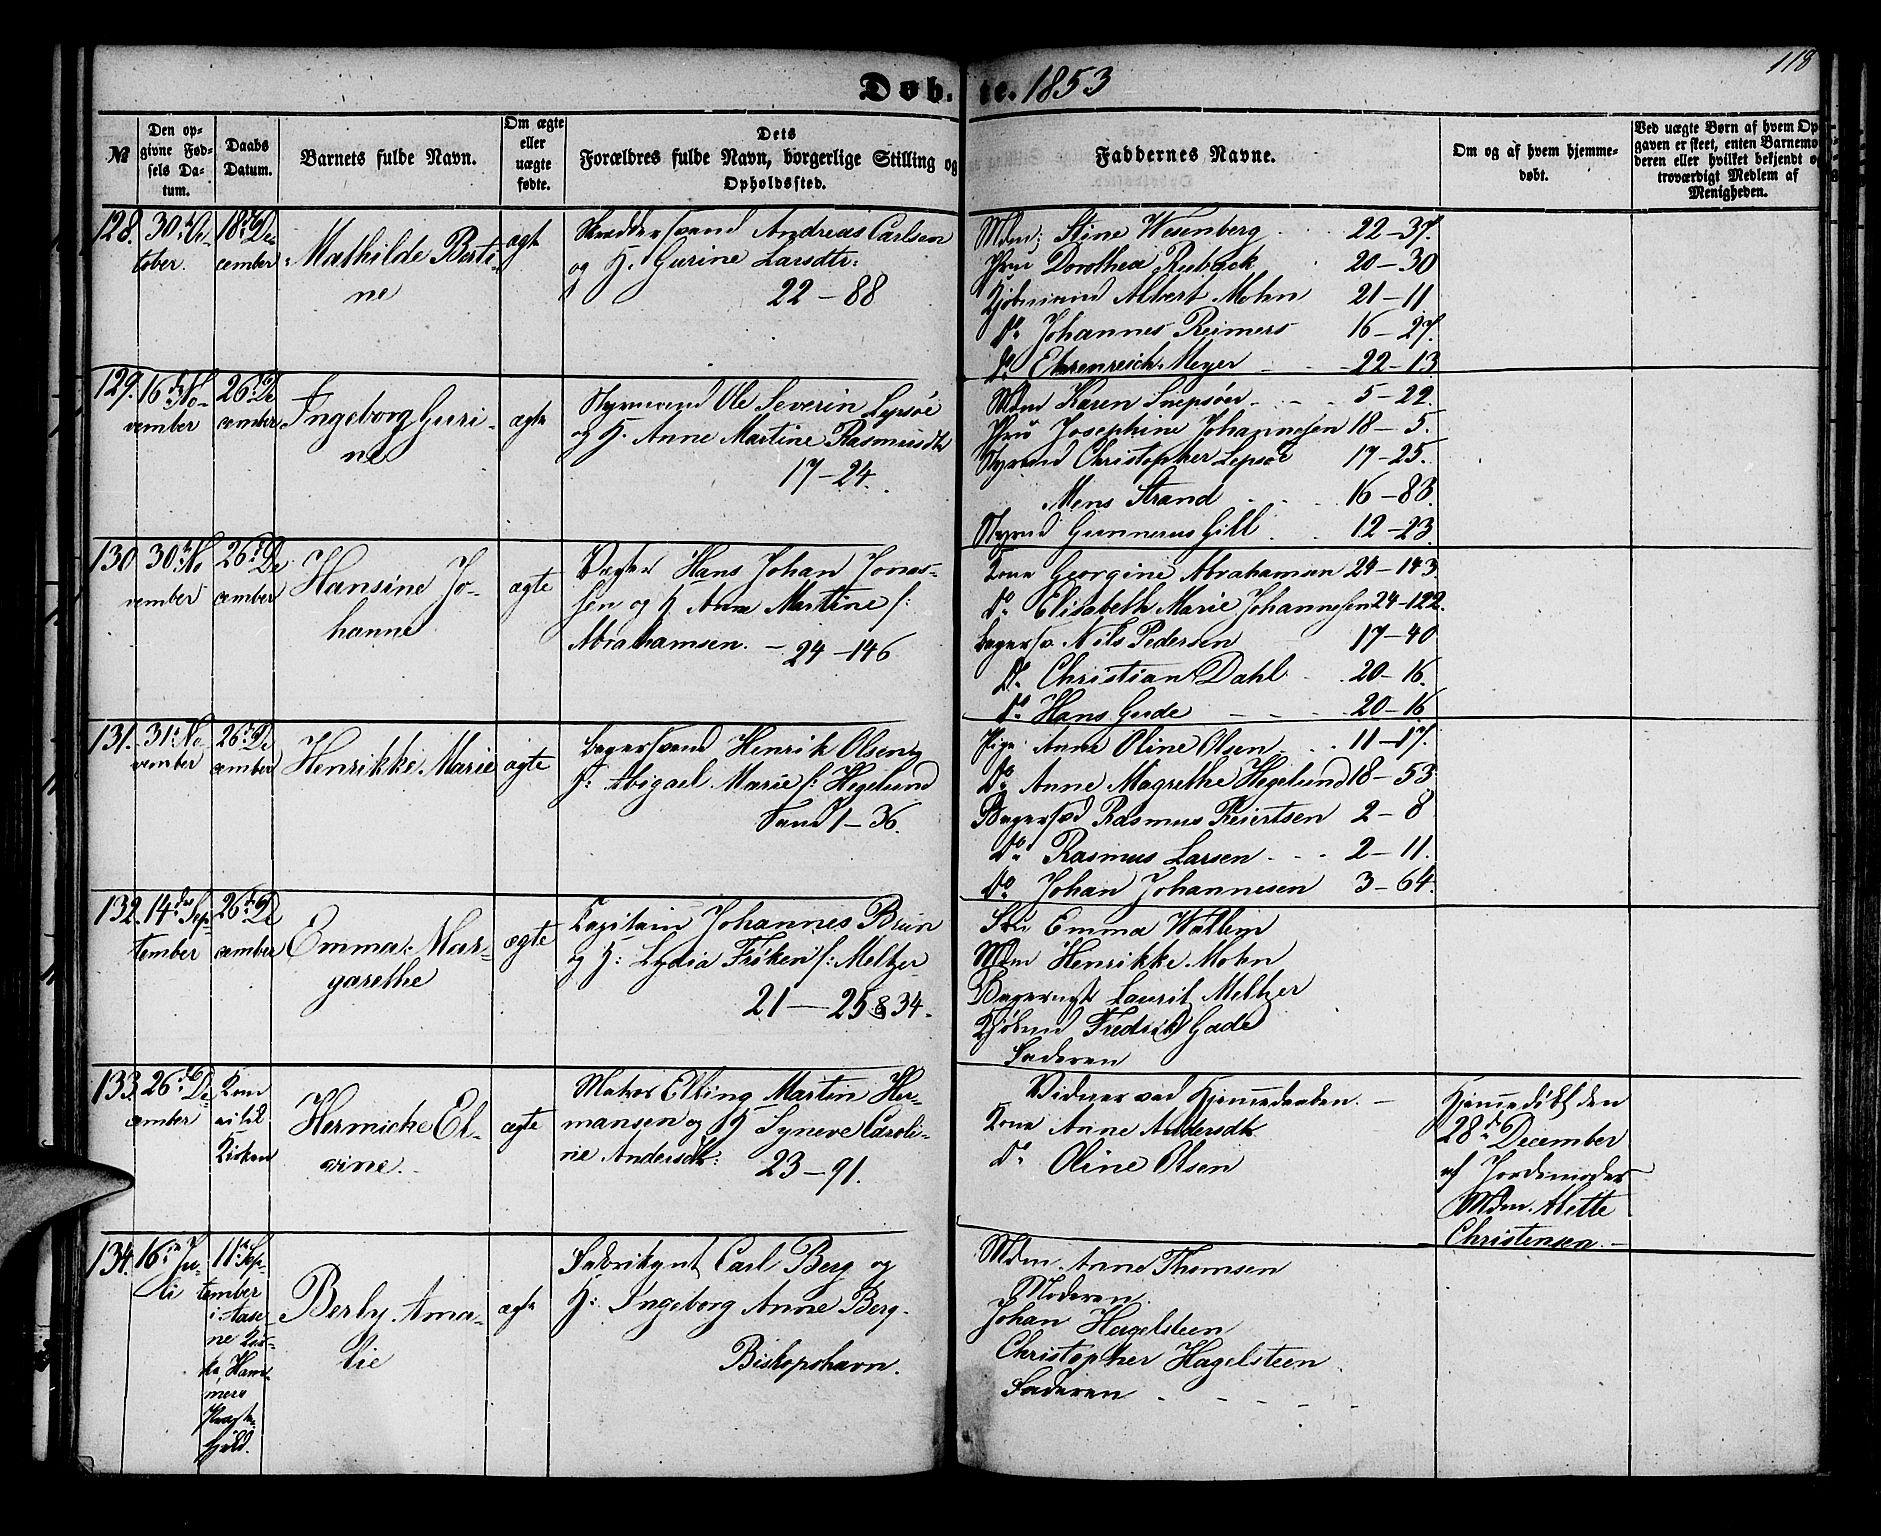 118
Døb-te. 1853
№
Den op-
givne Fød-
sels Da-
tum.
Daabs
Datum.
Barnets fulde Navn.
Om ægte
eller
uægte
fødte.
Dets
Forældres fulde Navn, borgerlige Stilling og
Opholdssted.
Faddernes Navne.
Om og af hvem hjemme-
døbt.
Ved uægte Børn af hvem Op-
gaven er skeet, enten Barnemo-
deren eller hvilket bekjendt o
troværdigt Medlem af
Menigheden.
128.
30. Oc-
tober.
18. De-
cember
Mathilde Berti-
ne
ægte
Skreddersvend Andreas Carlsen
og H. Gurine Larsdtr:
22 - 88
Mdm; Stine Wesenberg 22-37.
Fru Dorothea Ruback 20-30
Kjøbmand Albert Mohn 21-11
do Johannes Reimers 16-27.
do Ehrenreich Meyer 22-13
129.
16 No-
vember
26. De
cember
Ingeborg Guri-
ne
ægte
Styrmand Ole Severin Lepsøe
og H. Anne Martine Rasmusdtr
17-24.
Mdm Karen Snepsøer 5-22.
Fru Josephine Johannesen 18-5.
Styrmd Christopher Lepsøe 17-25.
Mons Strand 16-83.
Styrmd Gunnerus Gill 12-23.
130
30. No
vember
26. De
cember
Hansine Jo-
hanne
ægte
Bager Hans Johan Jonas-
sen og H Anne Martine f:
Abrahamsen. - 24-146
Kone Georgine Abrahamsen 24-143.
do Elisabeth Marie Johannesen 24-122.
Bagersv Nils Pedersen 17-40
do Christian Dahl 20-16.
do Hans Gude 20-16
131.
31. No
vember
26. De
cember
Henrikke Marie
ægte
Bagersvend Henrik Olsen og
H: Abigael Marie f: Hegelund
Sand 1-36.
Pige Anne Oline Olsen 11-17.
do Anne Magrethe Hegelund 18-53
Bagersvd Rasmus Reiertsen 2-8
do Rasmus Larsen 2-11.
do Johan Johannesen 3-64.
132.
14 Sep-
tember
26. De
cember
Emma Mar-
garethe
ægte
Capitain Johannes Brun
og H: Lydia Frøken f: Meltzer
21-25 & 34.
Emma Wallem
Mdm Henrikke Mohn
Laurit Meltzer
Kjøbmd Fredrik Gade
Faderen
133.
26. De-
cember
Kom
ei til
Kirken
Hermicke El-
vine.
ægte
Matros Elling Martin Her-
mansen og H Syneve Caroli-
ne Andersdtr: 23-91.
Vidner ved Hjemmedaaben. -
Kone Anne Andersdtr
do Oline Olsen
Hjemmedøbt den
28 December
af Jordemoder
Mdm. Alette
Christensen. -
134.
16. Ju-
li
11. Sep-
tember
i Aase-
ne Kir-
ke, Ham-
mers
Præste-
gjeld.
Berly Ama-
lie
ægte
Fabrikant Carl Berg og
H: Ingeborg Anne Berg.
Biskopshavn.
Mdm. Anne Thomsen
Moderen.
Johan Hagelsteen
Christopher Hagelsteen
Faderen